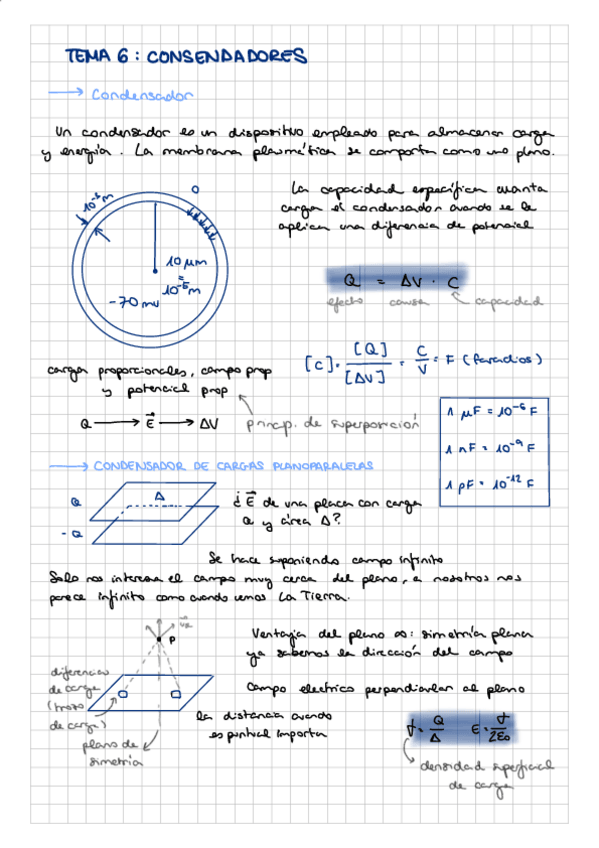 TEMA 6 : CONSENDADORES
→ Condensador
Un condensador es un dispositivo empleado para almacenar carga
y energía. La membrana plasmática se comporta como uno plano.
La capacidad específica cuanta
carga el condensador cuando se le
aplica una diferencia de potencial
10⁻⁸ m
0
10 μm
=
10⁻⁵ m
-70 mv
Q = ΔV · C
efecto causa capacidad
carga proporcionales, campo prop
y potencial prop
[C] = [Q] / [ΔV] = C/V = F (faradios)
Q → E⃗ → ΔV princip. de superposición
1 μF = 10⁻⁶ F
1 nF = 10⁻⁹ F
1 pF = 10⁻¹² F
→ CONDENSADOR DE CARGAS PLANOPARALELAS
Q
Δ
-Q
¿E⃗ de una placa con carga
Q y área Δ?
Se hace suponiendo campo infinito
Solo nos interesa el campo muy cerca del plano, a nosotros nos
parece infinito como cuando vemos La Tierra.
P
Ventaja del plano ∞: simetría plana
ya sabemos la dirección del campo
diferencias
de carga
(trozo
de carga)
Campo electrico perpendicular al plano
la distancia cuando
es puntual importa
plano de
simetría
σ = Q/Δ E = σ/2ε₀
densidad superficial
de carga